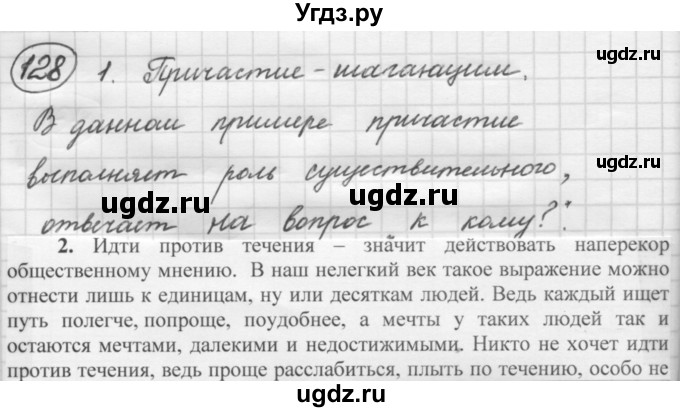 Угдз.ру
128 1. Причастие - шагающим.
В данном примере причастие
выполняет роль существительного,
отвечает на вопрос к кому?
2. Идти против течения – значит действовать наперекор
общественному мнению. В наш нелегкий век такое выражение можно
отнести лишь к единицам, ну или десяткам людей. Ведь каждый ищет
путь полегче, попроще, поудобнее, а мечты у таких людей так и
остаются мечтами, далекими и недостижимыми. Никто не хочет идти
против течения, ведь проще расслабиться, плыть по течению, особо не
ugdz.ru
ugdz.ru
ugdz.ru
ugdz.ru
ugdz.ru
ugdz.ru
ugdz.ru
ugdz.ru